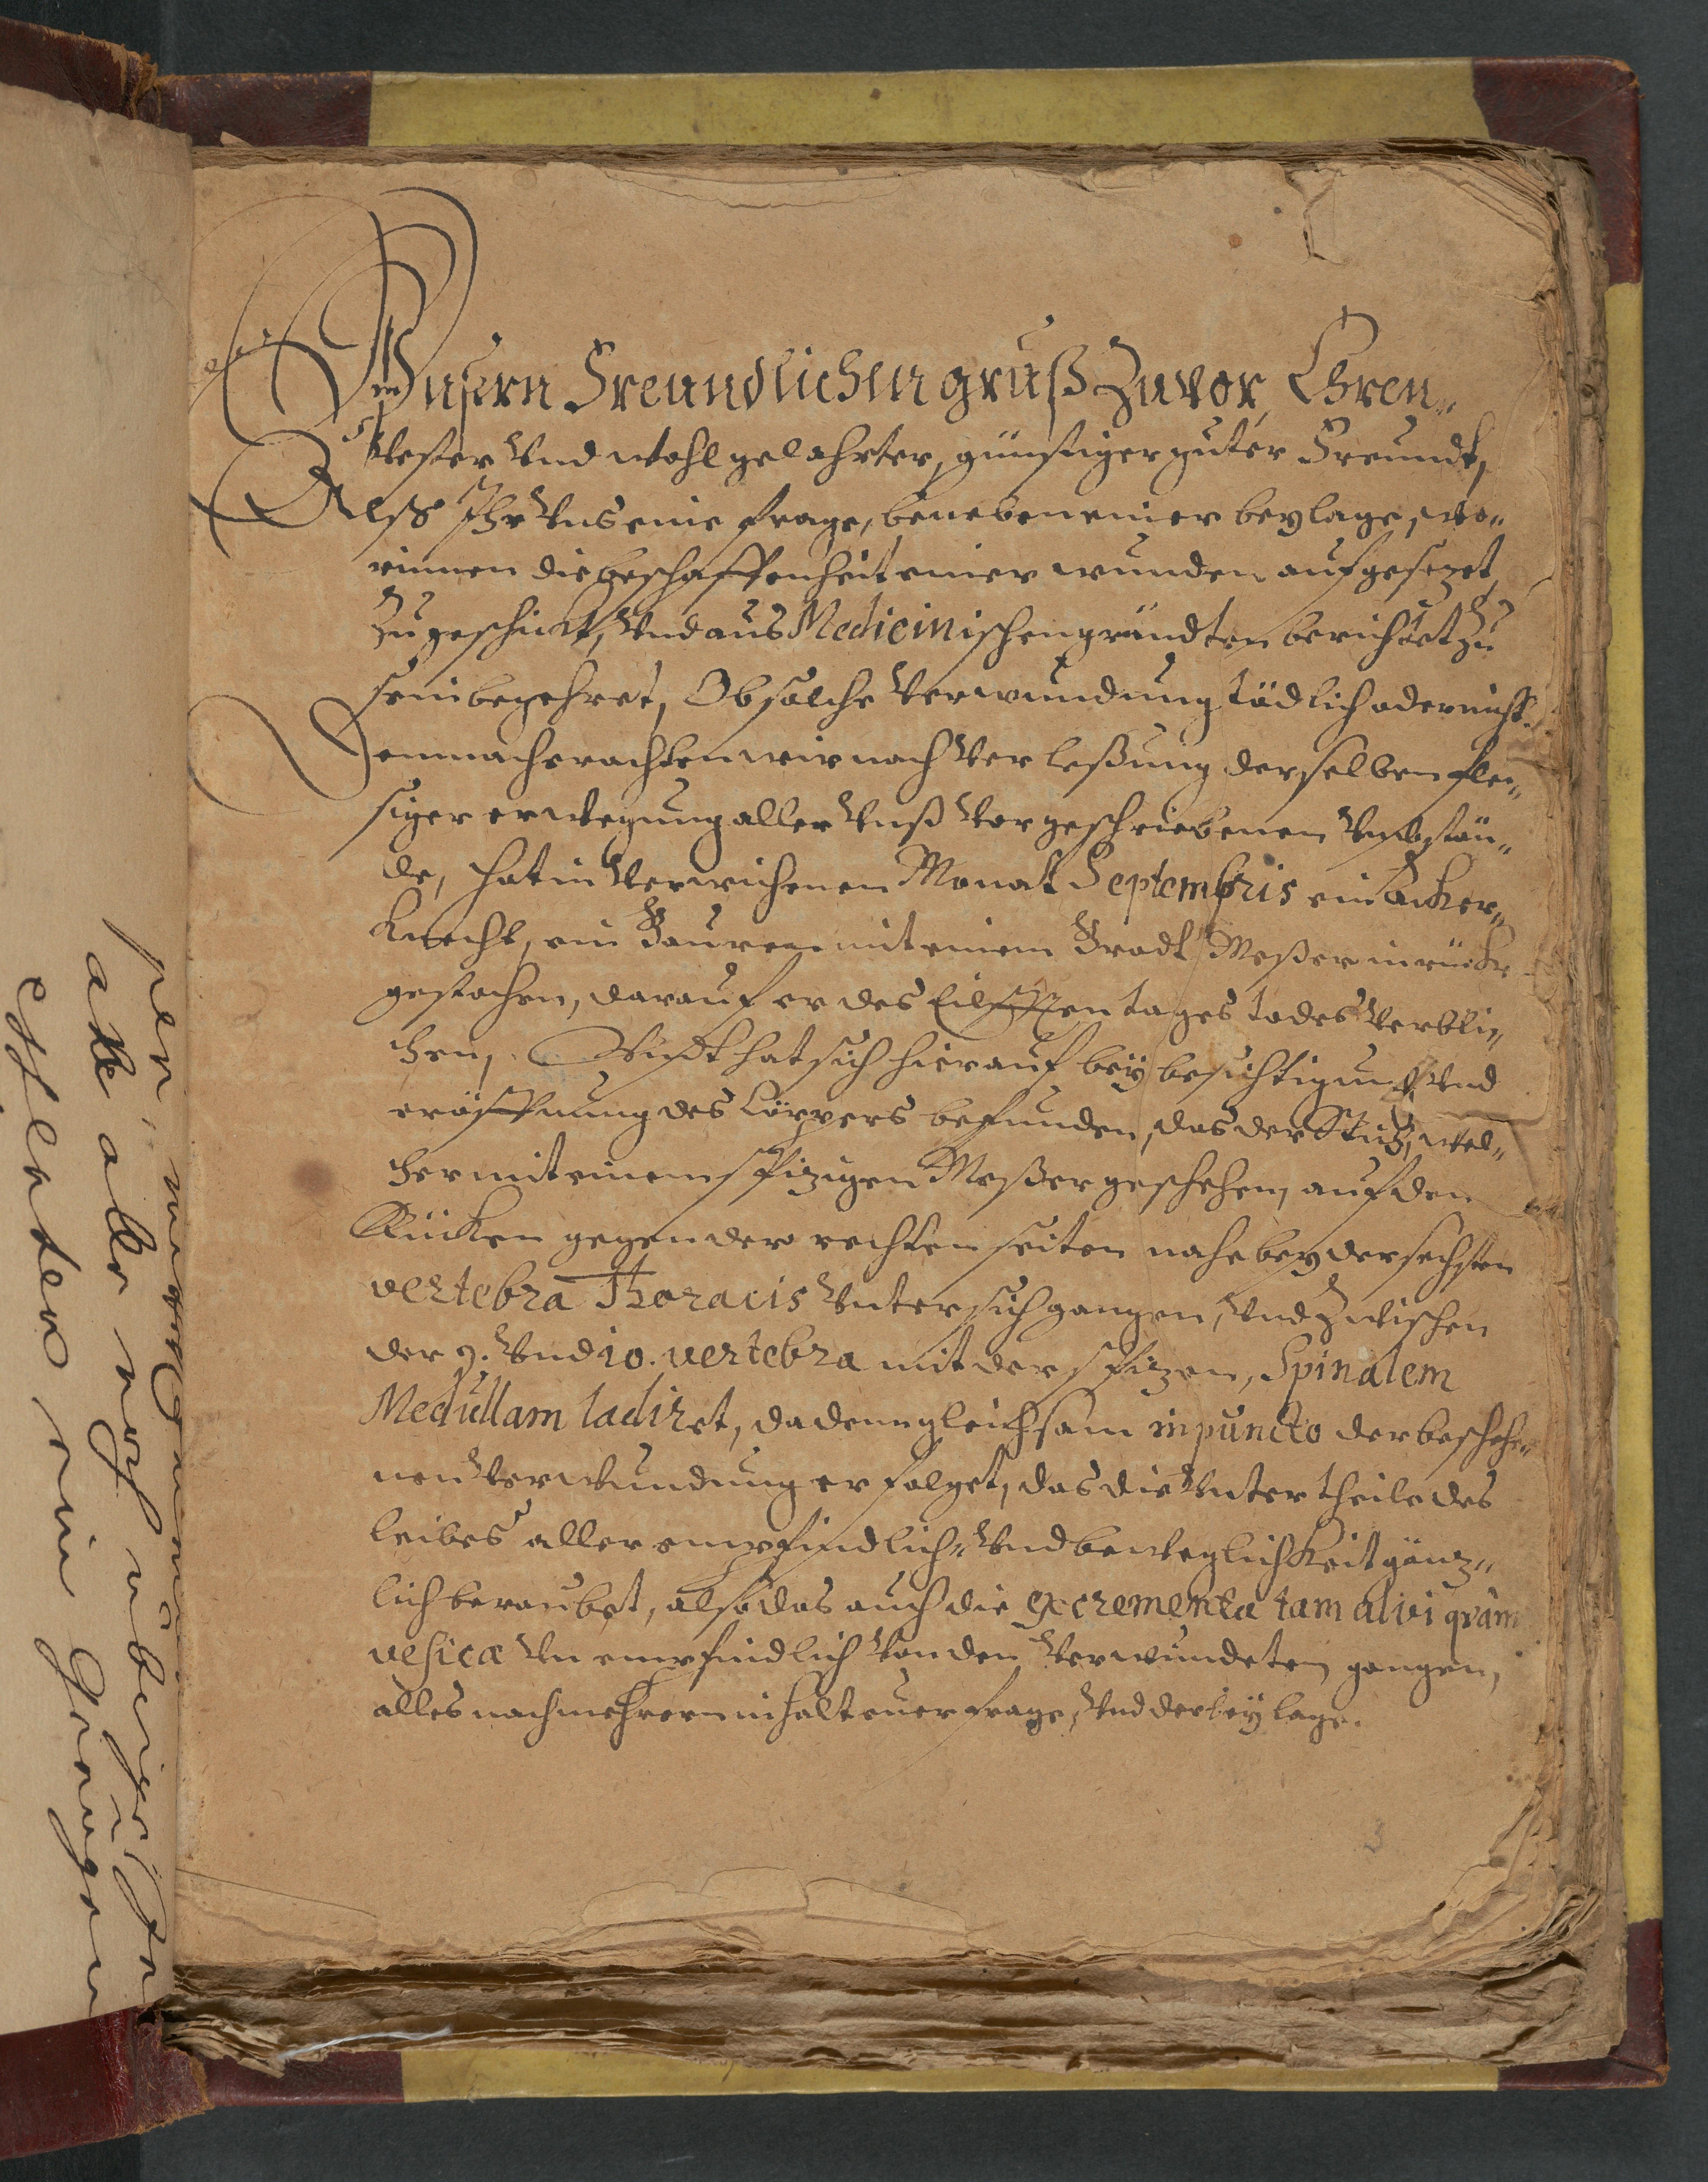 Vnsern Freundlichen gruß Zuvor, Ehren„
Vester Vnd wohlgelahrter, günstiger guter Freundt,
Alß Ihr Vns eine frage, beneben einer beylage, wo„
rinnen die beschaffenheit einer wunden aufgesezet
Zugeschickt, Vnd aus Medicinischen gründten berichtet zu
sein begehret, Ob solche Verwundung tödlich oder nicht.
Demnach erachten wir nach Verleßung derselben flei„
siger erwegung aller Vnß Vorgeschriebenen Vmbstän„
de, hat in Verwichenen Monat Septembris ein Acker„
Knecht, ein Bauren mit einem Brodt Meßer in rücke
gestochen, darauf er des Eilfften tages todes Verbli„
chen, hat sich hierauf bey besichtigung Vnd
eröffnung des Cörpers befunden, das der Stich, wel„
cher mit einem spizigen Meßer geschehen, auf den
Rücken gegen der rechten seiten nahe bey der sechsten
vertebra Thoracis Vnter sich gangen, Vnd Zwischen
der 9. Vnd 10. vertebra mit der spizen, Spinalem
Medullam ladiret, da denn gleichsam in puncto der beschehe„
nen Verwundung erfolget, das die Vnter theile des
leibes aller empfindlich„ Vnd beweglichkeit gänz„
lich beraubet, also das auch die excrementa tam alvi qvàm
vesicæ Vnempfindlich Von den Verwundeten gangen,
alles nach mehrerm inhalt euer frage, Vnd der beylage.
3